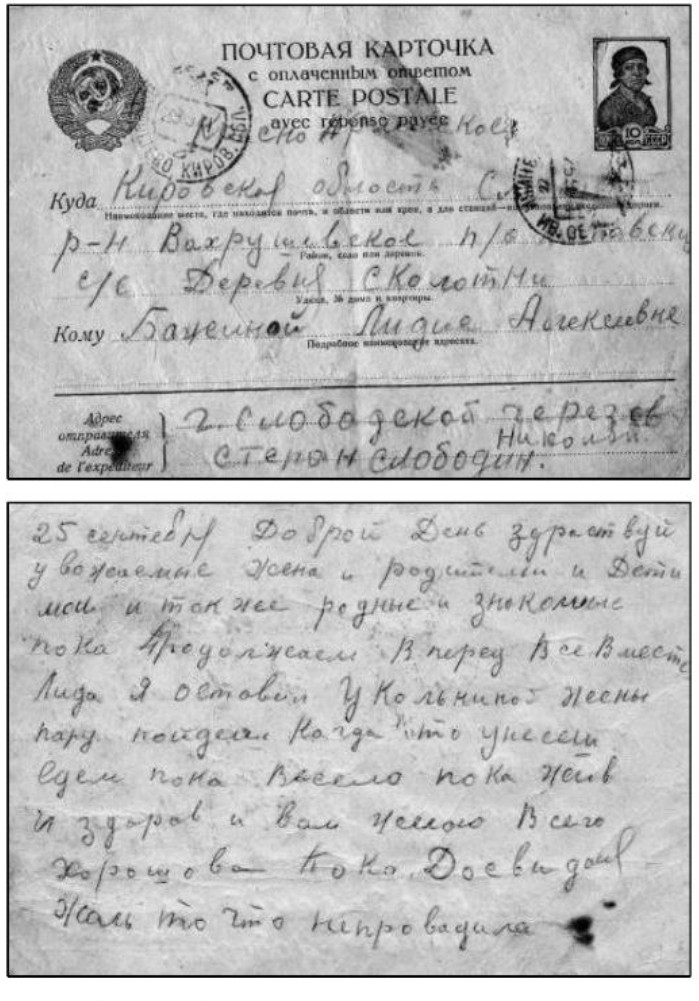 ПОЧТОВАЯ КАРТОЧКА
с оплаченным ответом
CARTE POSTALE
avec réponse payée
10
СССР
КИРОВ. ОБЛ.
Куда Кировская область
Наименование места, где находится почта, и области или края, а для станций—наименование железной дороги.
р-н Вахрушевское п/о
Район, село или деревня.
с/с Деревня Сколотни
Улица, № дома и квартиры.
Кому Бажиной Лидие Алексевне
Подробное наименование адресата.
Адрес
отправителя
Adresse
de l'expéditeur
г. Слободской через ев
Николы
степан слободин.
25 сентебря Доброй День здраствуй
уважаемые жена и родители и Дети
мои и так же родные и знокомые
пока Продолжаем В перед Все Вместе
Лида Я оставил У Кольниной жены
пару Когда что унесеш
Едем пока Весело пока жив
и здоров и вам желаю Всего
хорошова Пока Досвидания
Жаль то что непровадила